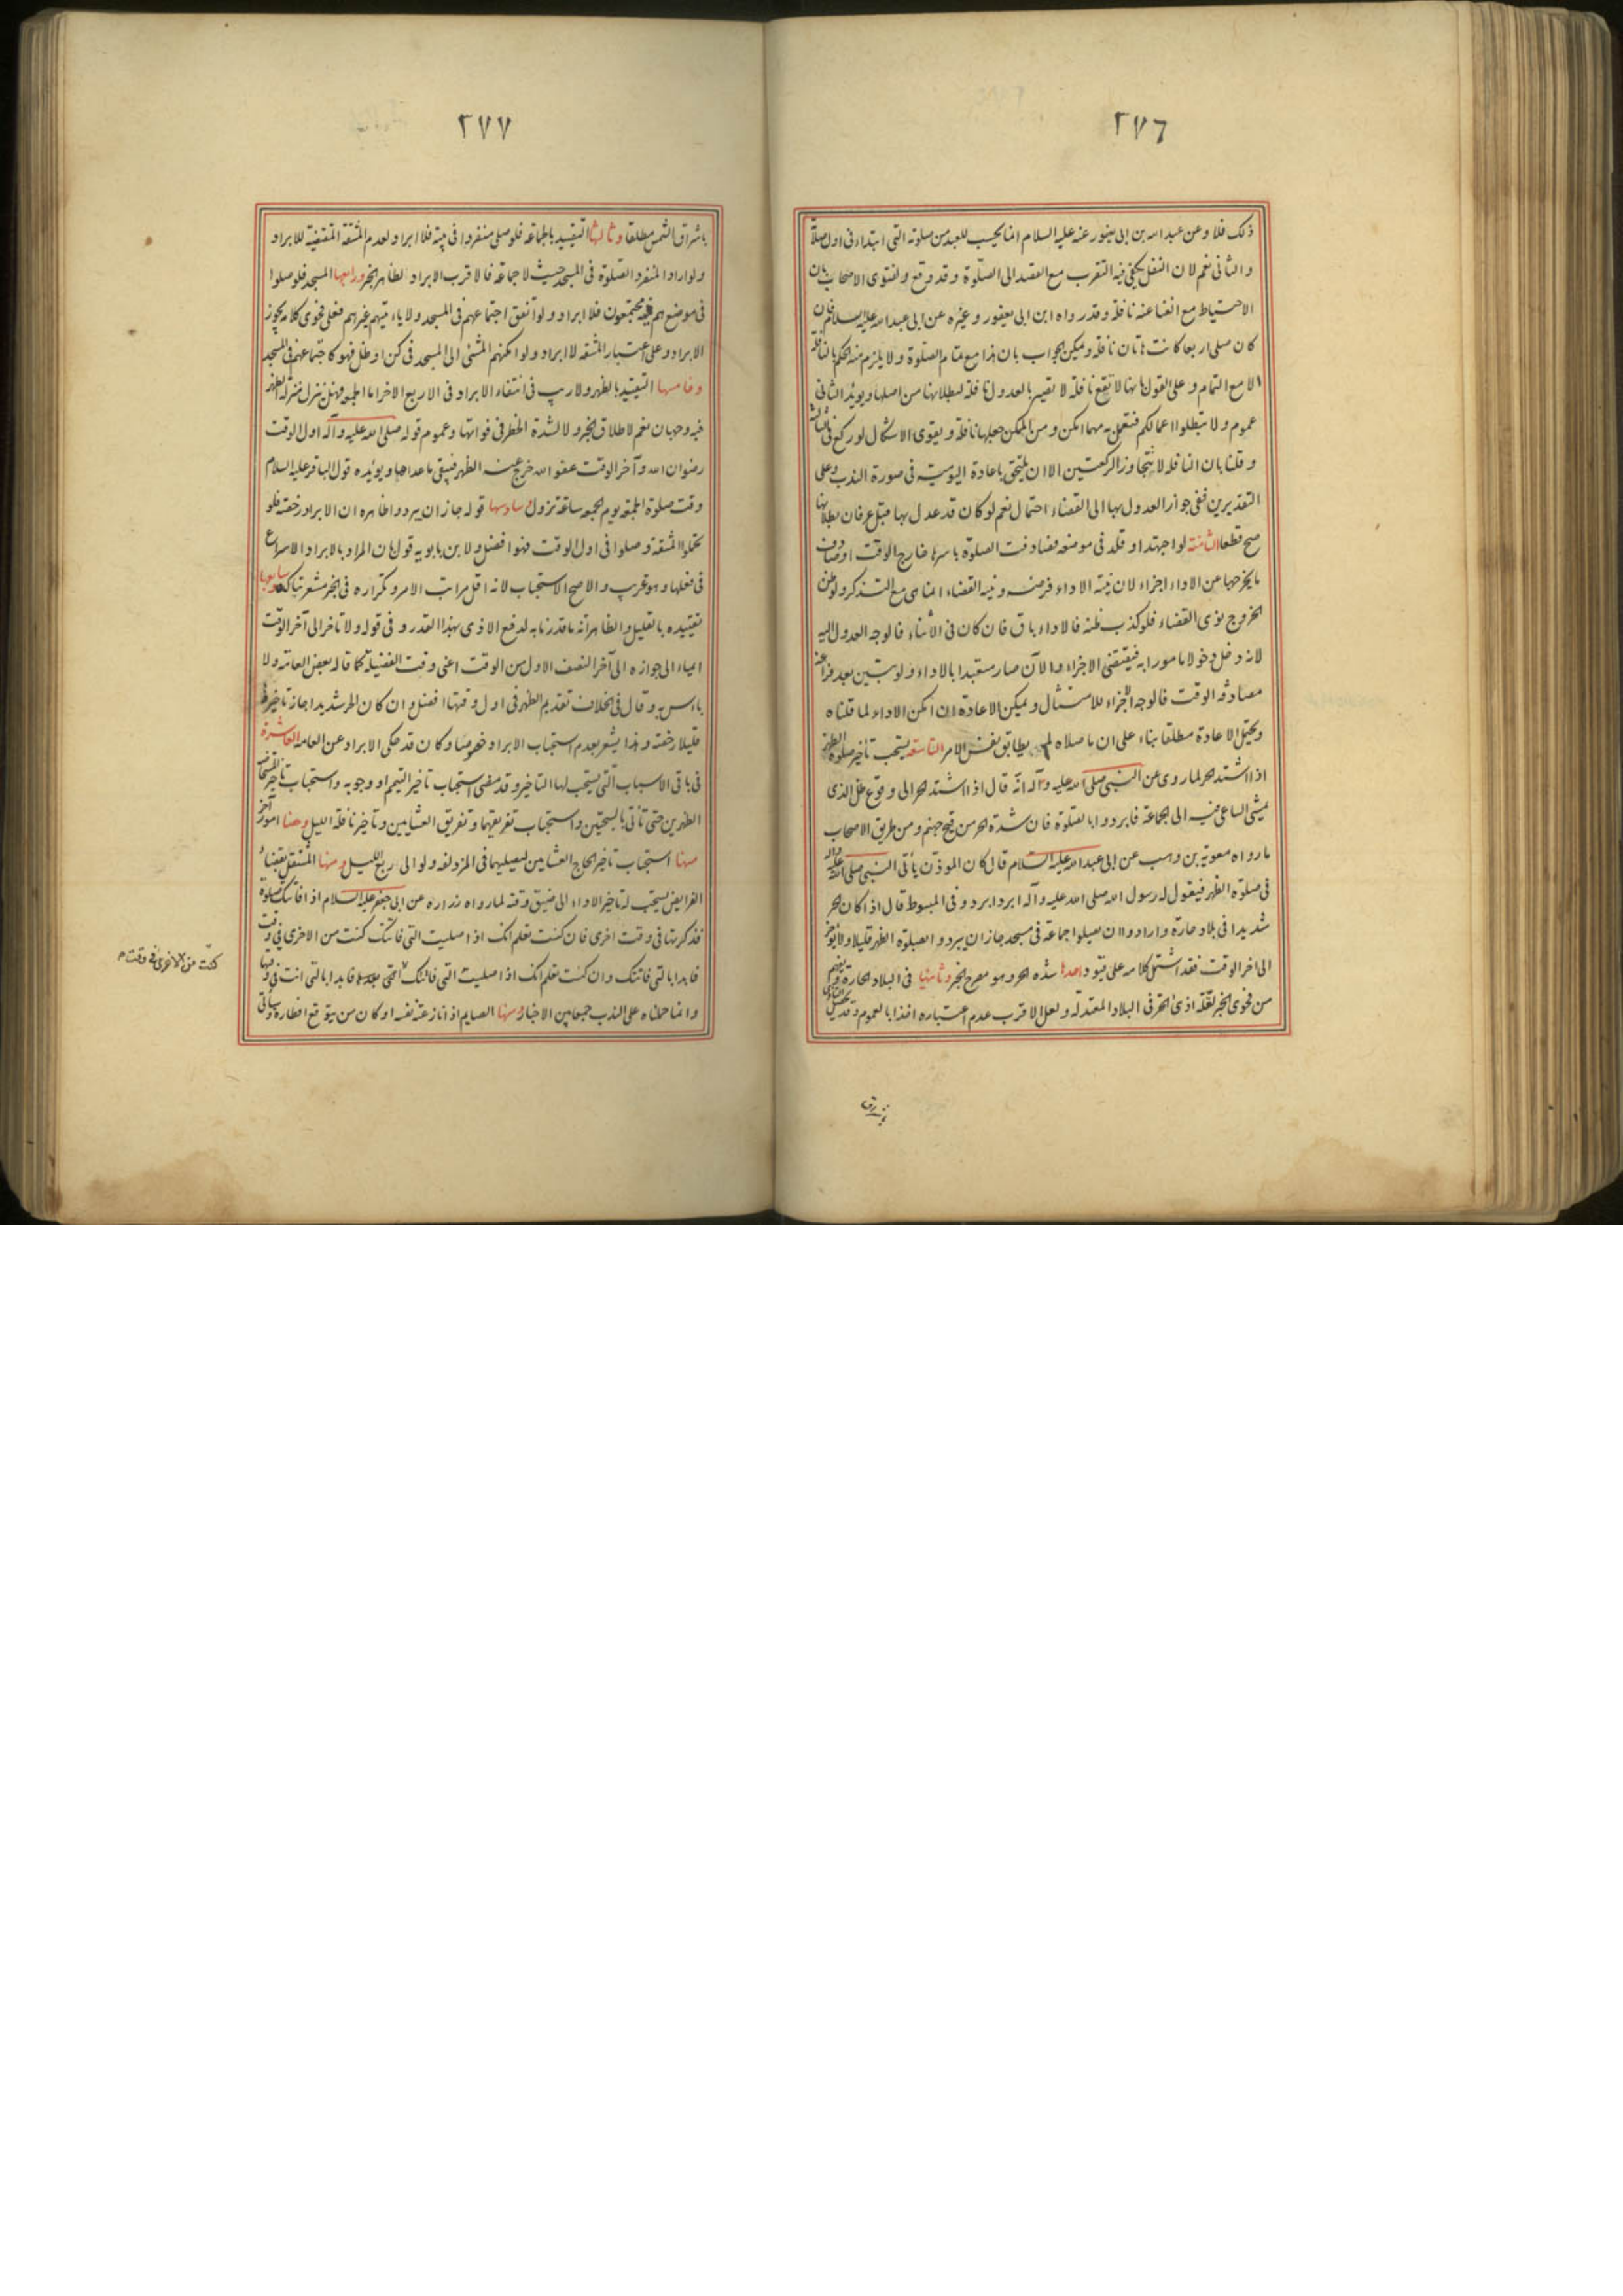 ٢٧٦
ذلك فلا وعن عبد الله بن ابى يعفور عنه عليه السلام انما يحسب للعبد من صلوته التى ابتداء فى اول صلاته
و الثانى نعم لان النفل يكفى فيه التقرب مع القصد الى الصلوة وقد وقع ولفتوى الاصحاب بان
الاحتياط مع الغنا عنه نافلة وقد رواه ابن ابى يعفور وغيره عن ابى عبد الله عليه السلام فان
كان صلى اربعا كانت هاتان نافلة ويمكن الجواب بان هذا مع تمام الصلوة ولا يلزم منه الحكم بالنافلة
الا مع التمام وعلى القول بانها لا تقع نافلة لا تصير بالعدول نافلة لبطلانها من اصلها ويؤيد الثانى
عموم ولا تبطلوا اعمالكم فتعمل به مهما امكن ومن الممكن جعلها نافلة ويقوى الاشكال لو ركع فى الثالثة
وقلنا بان النافلة لا تتجاوز الركعتين الا ان يلتحق باعادة اليومية فى صورة الندب وعلى
التقديرين ففى جواز العدول بها الى القضاء احتمال نعم لو كان قد عدل بها قبل عرفان بطلانها
صح قطعا الثامنة لو اجتهد او قلد فى موضعه فصادفت الصلوة باسرها خارج الوقت او صادف
ما يخرجها عن الاداء اجزاء لان نية الاداء فرضه ونية القضاء انما هى مع التذكر ولو ظن
الخروج نوى القضاء فلو كذب ظنه فالاداء باق فان كان فى الاثناء فالوجه العدول اليه
لانه دخل دخولا مامورا به فيقتضى الاجزاء والآن صار متعبدا بالاداء ولو تبين بعد فراغه
مصادفة الوقت فالوجه الاجزاء للامتثال ويمكن الاعادة ان امكن الاداء لما قلناه
ويحتمل الاعادة مطلقا بناء على ان ما صلاه لم يطابق نفس الامر التاسعة يستحب تاخير صلوة الظهر
اذا اشتد الحر لما روى عن النبى صلى الله عليه وآله انه قال اذا اشتد الحر الى وقوع ظل الذى
يمشى الساعى فيه الى الجماعة فابردوا بالصلوة فان شدة الحر من فيح جهنم ومن طريق الاصحاب
ما رواه معوية بن وهب عن ابى عبد الله عليه السلام قال كان الموذن ياتى النبى صلى الله عليه وآله
فى صلوة الظهر فيقول له رسول الله صلى الله عليه وآله ابرد ابرد وفى المبسوط قال اذا كان الحر
شديدا فى بلاد حارة وارادوا ان يصلوا جماعة فى مسجد جاز ان يبردوا بصلوة الظهر قليلا ولا يؤخر
الى اخر الوقت فقد اشتمل كلامه على قيود احدها شدة الحر وهو مصرح الخبر وثانيها فى البلاد الحارة
من فحوى الخبر لقلة اذى الحر فى البلاد المعتدلة ولعل الاقرب عدم اعتباره اخذا بالعموم
باشراق
٢٧٧
باشراق الشمس مطلقا وثالثها التقييد بالجماعة فلو صلى منفردا فى بيته فلا ابراد لعدم المشقة المقتضية للابراد
ولو اراد المنفرد الصلوة فى المسجد حيث لا جماعة فالاقرب الابراد لظاهر الخبر ورابعها المسجد فلو صلوا
فى موضع هم فيه مجتمعون فلا ابراد ولو اتفق اجتماعهم فى المسجد ولا ياتيهم غيرهم فعلى فحوى كلامه يجوز
الابراد وعلى اعتبار المشقة لا ابراد ولو امكنهم المشى الى المسجد فى كن او ظل فهو كاجتماعهم فى المسجد
وخامسها التقييد بالظهر ولا ريب فى انتفاء الابراد فى الاربع الاخر اما الجمعة فهل تنزل منزلة الظهر
فيه وجهان نعم لاطلاق الخبر ولا لشدة الخطر فى فواتها وعموم قوله صلى الله عليه وآله اول الوقت
رضوان الله وآخر الوقت عفو الله خرج عنه الظهر فيبقى ما عداها ويؤيده قول الباقر عليه السلام
وقت صلوة الجمعة يوم الجمعة ساعة تزول وسادسها قوله جاز ان يبردوا ظاهره ان الابراد رخصة فلو
تحملوا المشقة وصلوا فى اول الوقت فهو افضل ولابن بابويه قول بان المراد بالابراد الاسراع
فى فعلها وهو غريب والاصح الاستحباب لانه اقل مراتب الامر وتكراره فى الخبر مشعر بتاكده وسابعها
تقييده بالقليل والظاهر انه ما قدرنا به لدفع الاذى بهذا القدر وفى قوله ولا تاخر الى آخر الوقت
ايماء الى جوازه الى آخر النصف الاول من الوقت اعنى وقت الفضيلة كما قاله بعض العامة ولا
باس به وقال فى الخلاف تقديم الظهر فى اول وقتها افضل وان كان الحر شديدا جاز تاخيرها
قليلا رخصة وهذا يشعر بعدم استحباب الابراد خصوصا وكان قد حكى الابراد عن العامة العاشرة
فى باقى الاسباب التى يستحب لها التاخير وقد مضى استحباب تاخير التيمم او وجوبه واستحباب تاخير المستحاضة
الظهرين حتى تاتى بالسبحتين واستحباب تفريقهما وتفريق العشاءين وتاخير نافلة الليل وهنا امور اخر
منها استحباب تاخير الحاج العشاءين ليصليهما فى المزدلفة ولو الى ربع الليل ومنها المشتغل بقضاء
الفرايض يستحب له تاخير الاداء الى ضيق وقته لما رواه زرارة عن ابى جعفر عليه السلام اذا فاتتك صلوة
فذكرتها فى وقت اخرى فان كنت تعلم انك اذا صليت التى فاتتك كنت من الاخرى فى وقت
فابدا بالتى فاتتك وان كنت تعلم انك اذا صليت التى فاتتك فابدا بالتى انت فى وقتها
وانما حملناه على الندب جمعا بين الاخبار ومنها الصايم اذا نازعته نفسه او كان من يتوقع افطاره وسياتى
كنت من الاخرى فى وقت